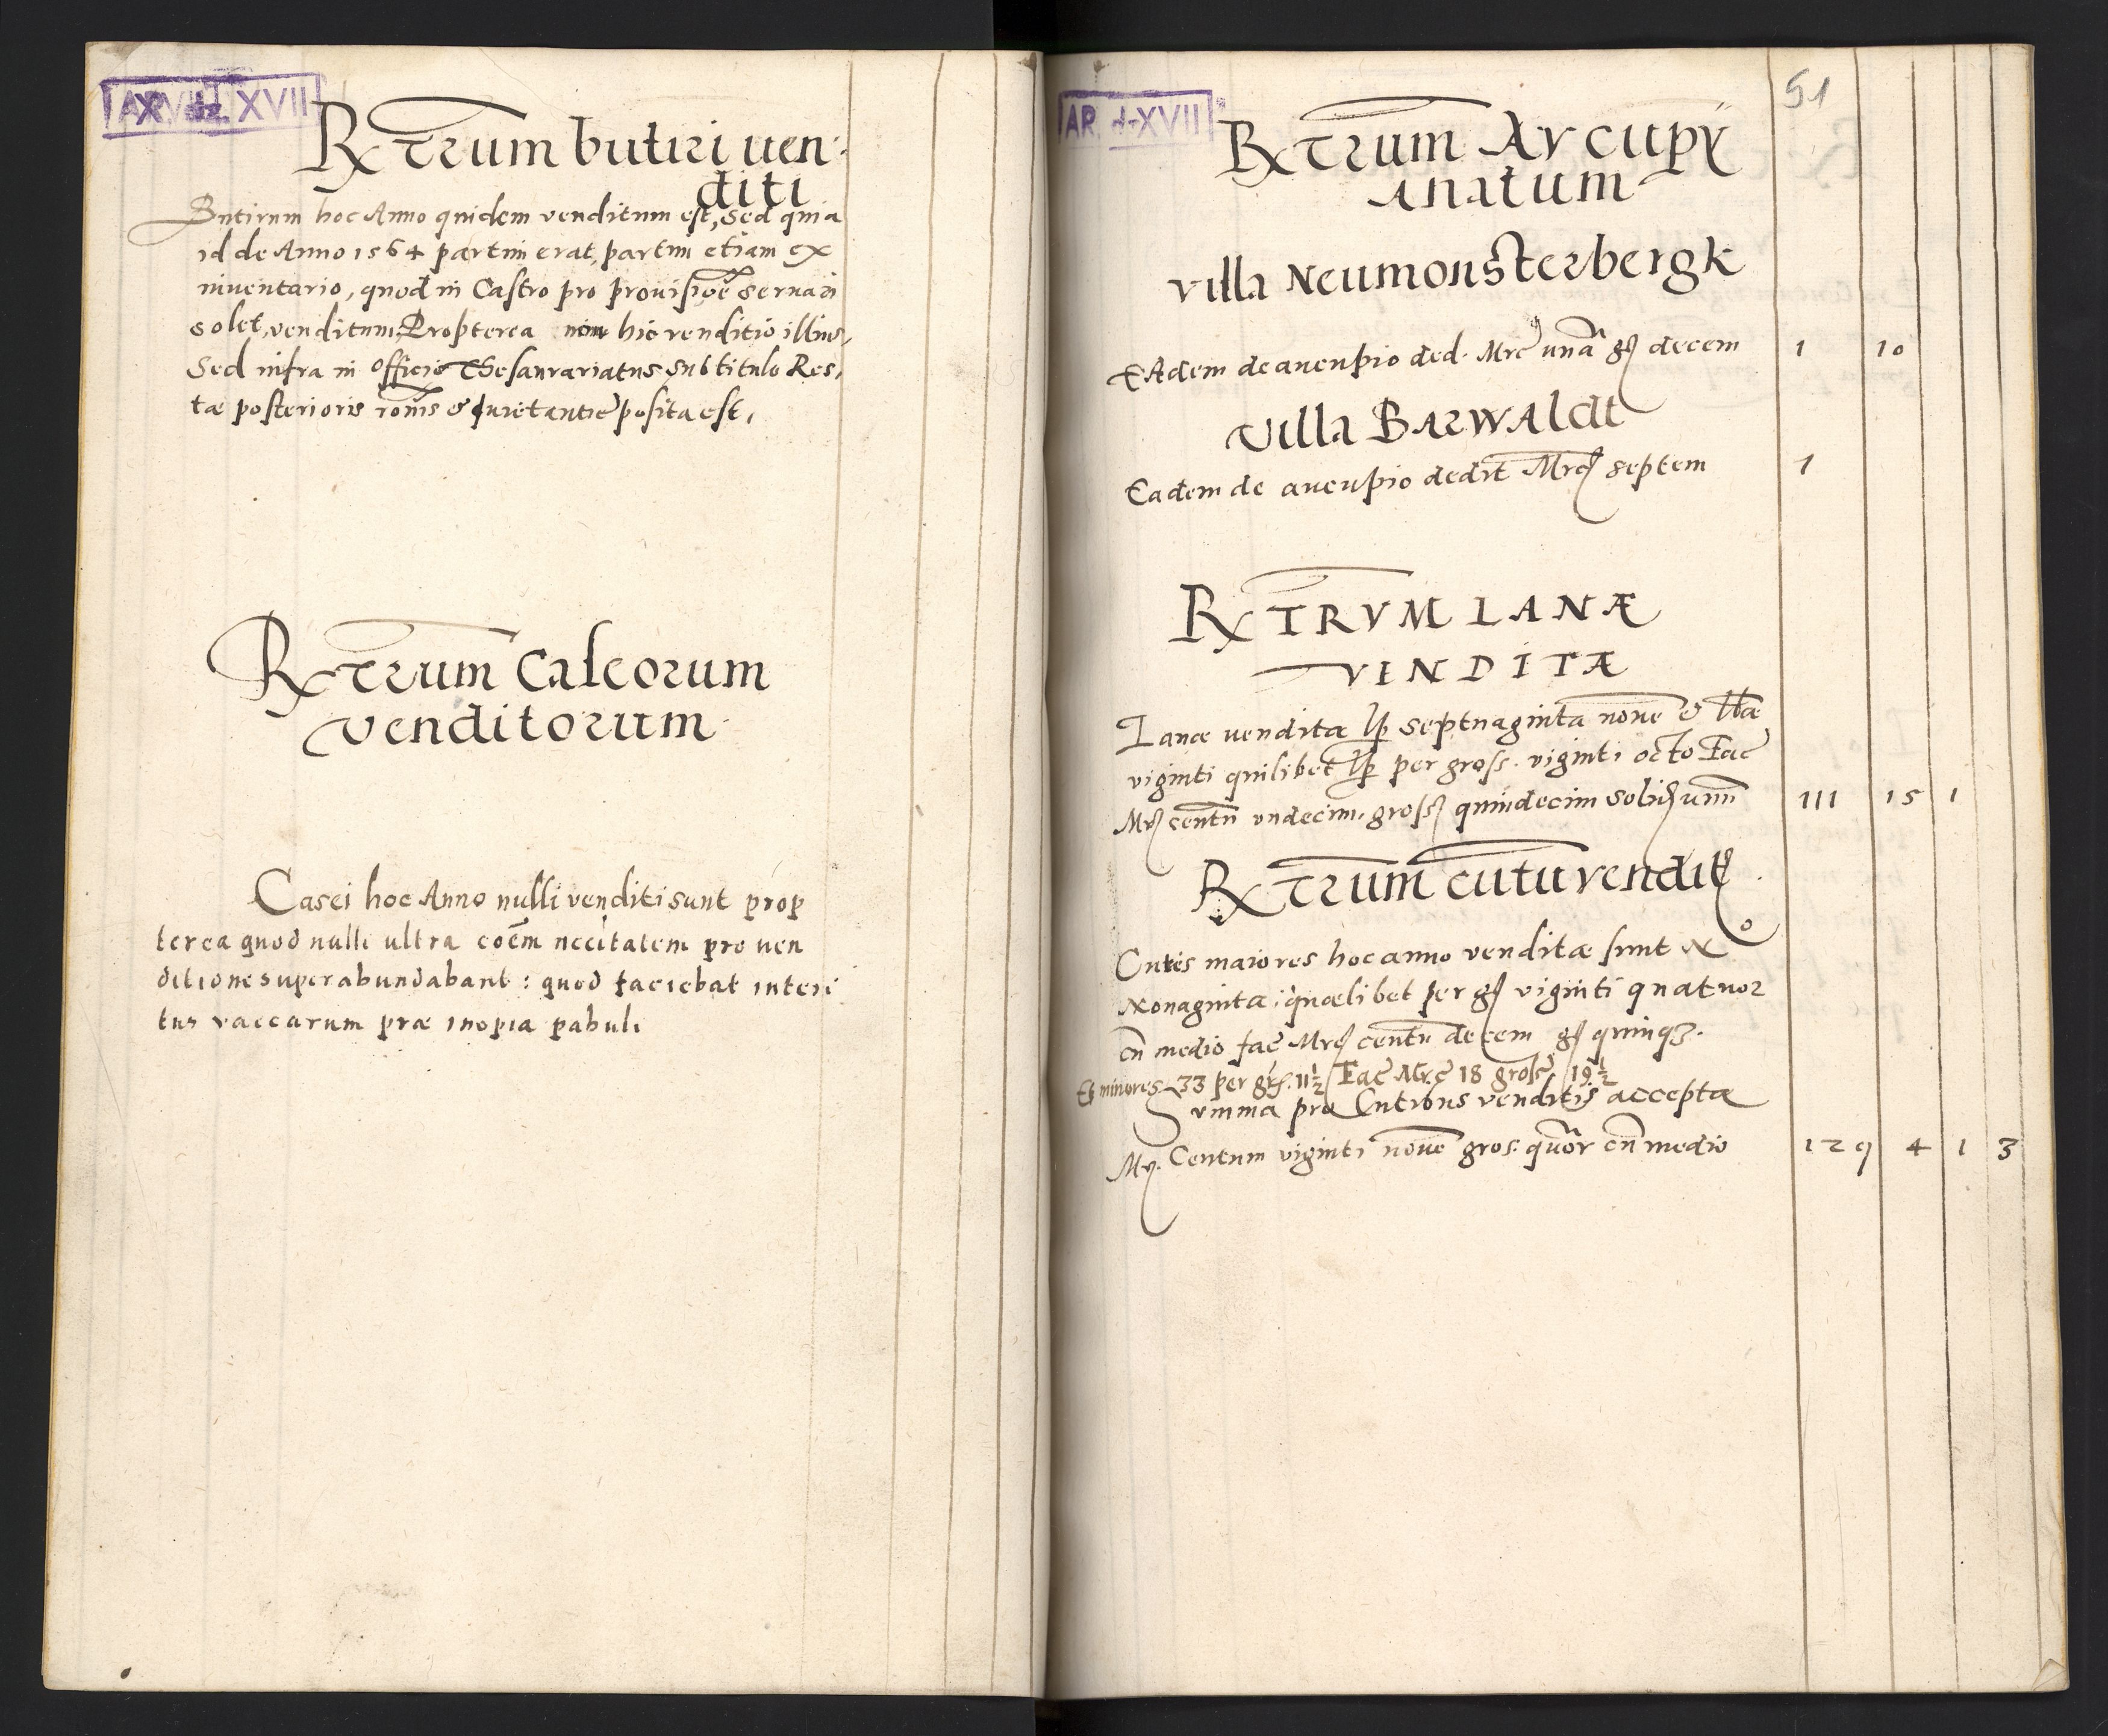 AR dz. XVII
Rx trum butiri uen-
diti
Butirum hoc Anno quidem venditum est, Sed quia
id de Anno 1564 partim erat, partim etiam ex
inuentario, quod in Castro pro prouisioe seruari
solet, venditum. Propterea non hic venditio illius,
Sed infra in Officio Thesaurariatus Subtitulo Res,
tæ posterioris ronis & quietantie posita est,
Rx trum Caseorum
venditorum
Casei hoc Anno nulli venditi sunt prop
terea quod nulli ultra coem nccitatem pro uen
ditione superabundabant : quod faciebat interi
tus vaccarum præ inopia pabuli
AR d-XVII
51
Rx trum Avcupÿ
Anatum
Villa Neumonsterbergk
EAdem de aucupio ded. Mrc unā gſ decem 1 10
Villa Barwaldt
Eadem de aucupio dedit Mrcſ septem 1
Rx TRVM LANÆ
VENDITÆ
Lanæ uendita lp septuaginta noue & lbæ
viginti quilibet lp per gross. viginti octo Fac
Mrſ centū vndecim, grossſ quindecim solidſ unū 111 15 1
Rx trum cutiu vendit
Cutes maiores hoc anno venditæ sunt N
Nonaginta : quælibet per gſ viginti quatuor
cū medio fac Mrcſ centū decem gſ quinqz.
Et minores 33 per grſ. 11½ Fac Mrc 18 grosſ 19½
Summa pro Cutibus venditis accepta
Mrſ. Centum viginti noue gros. quor cū medio 129 4 1 3